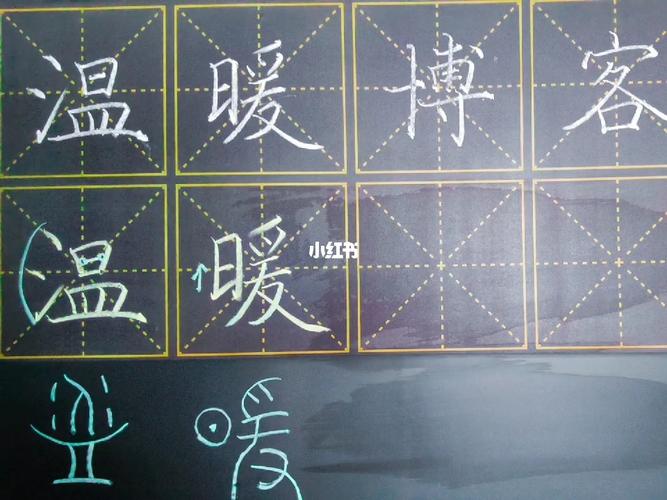 温暖博客
温暖
小红书